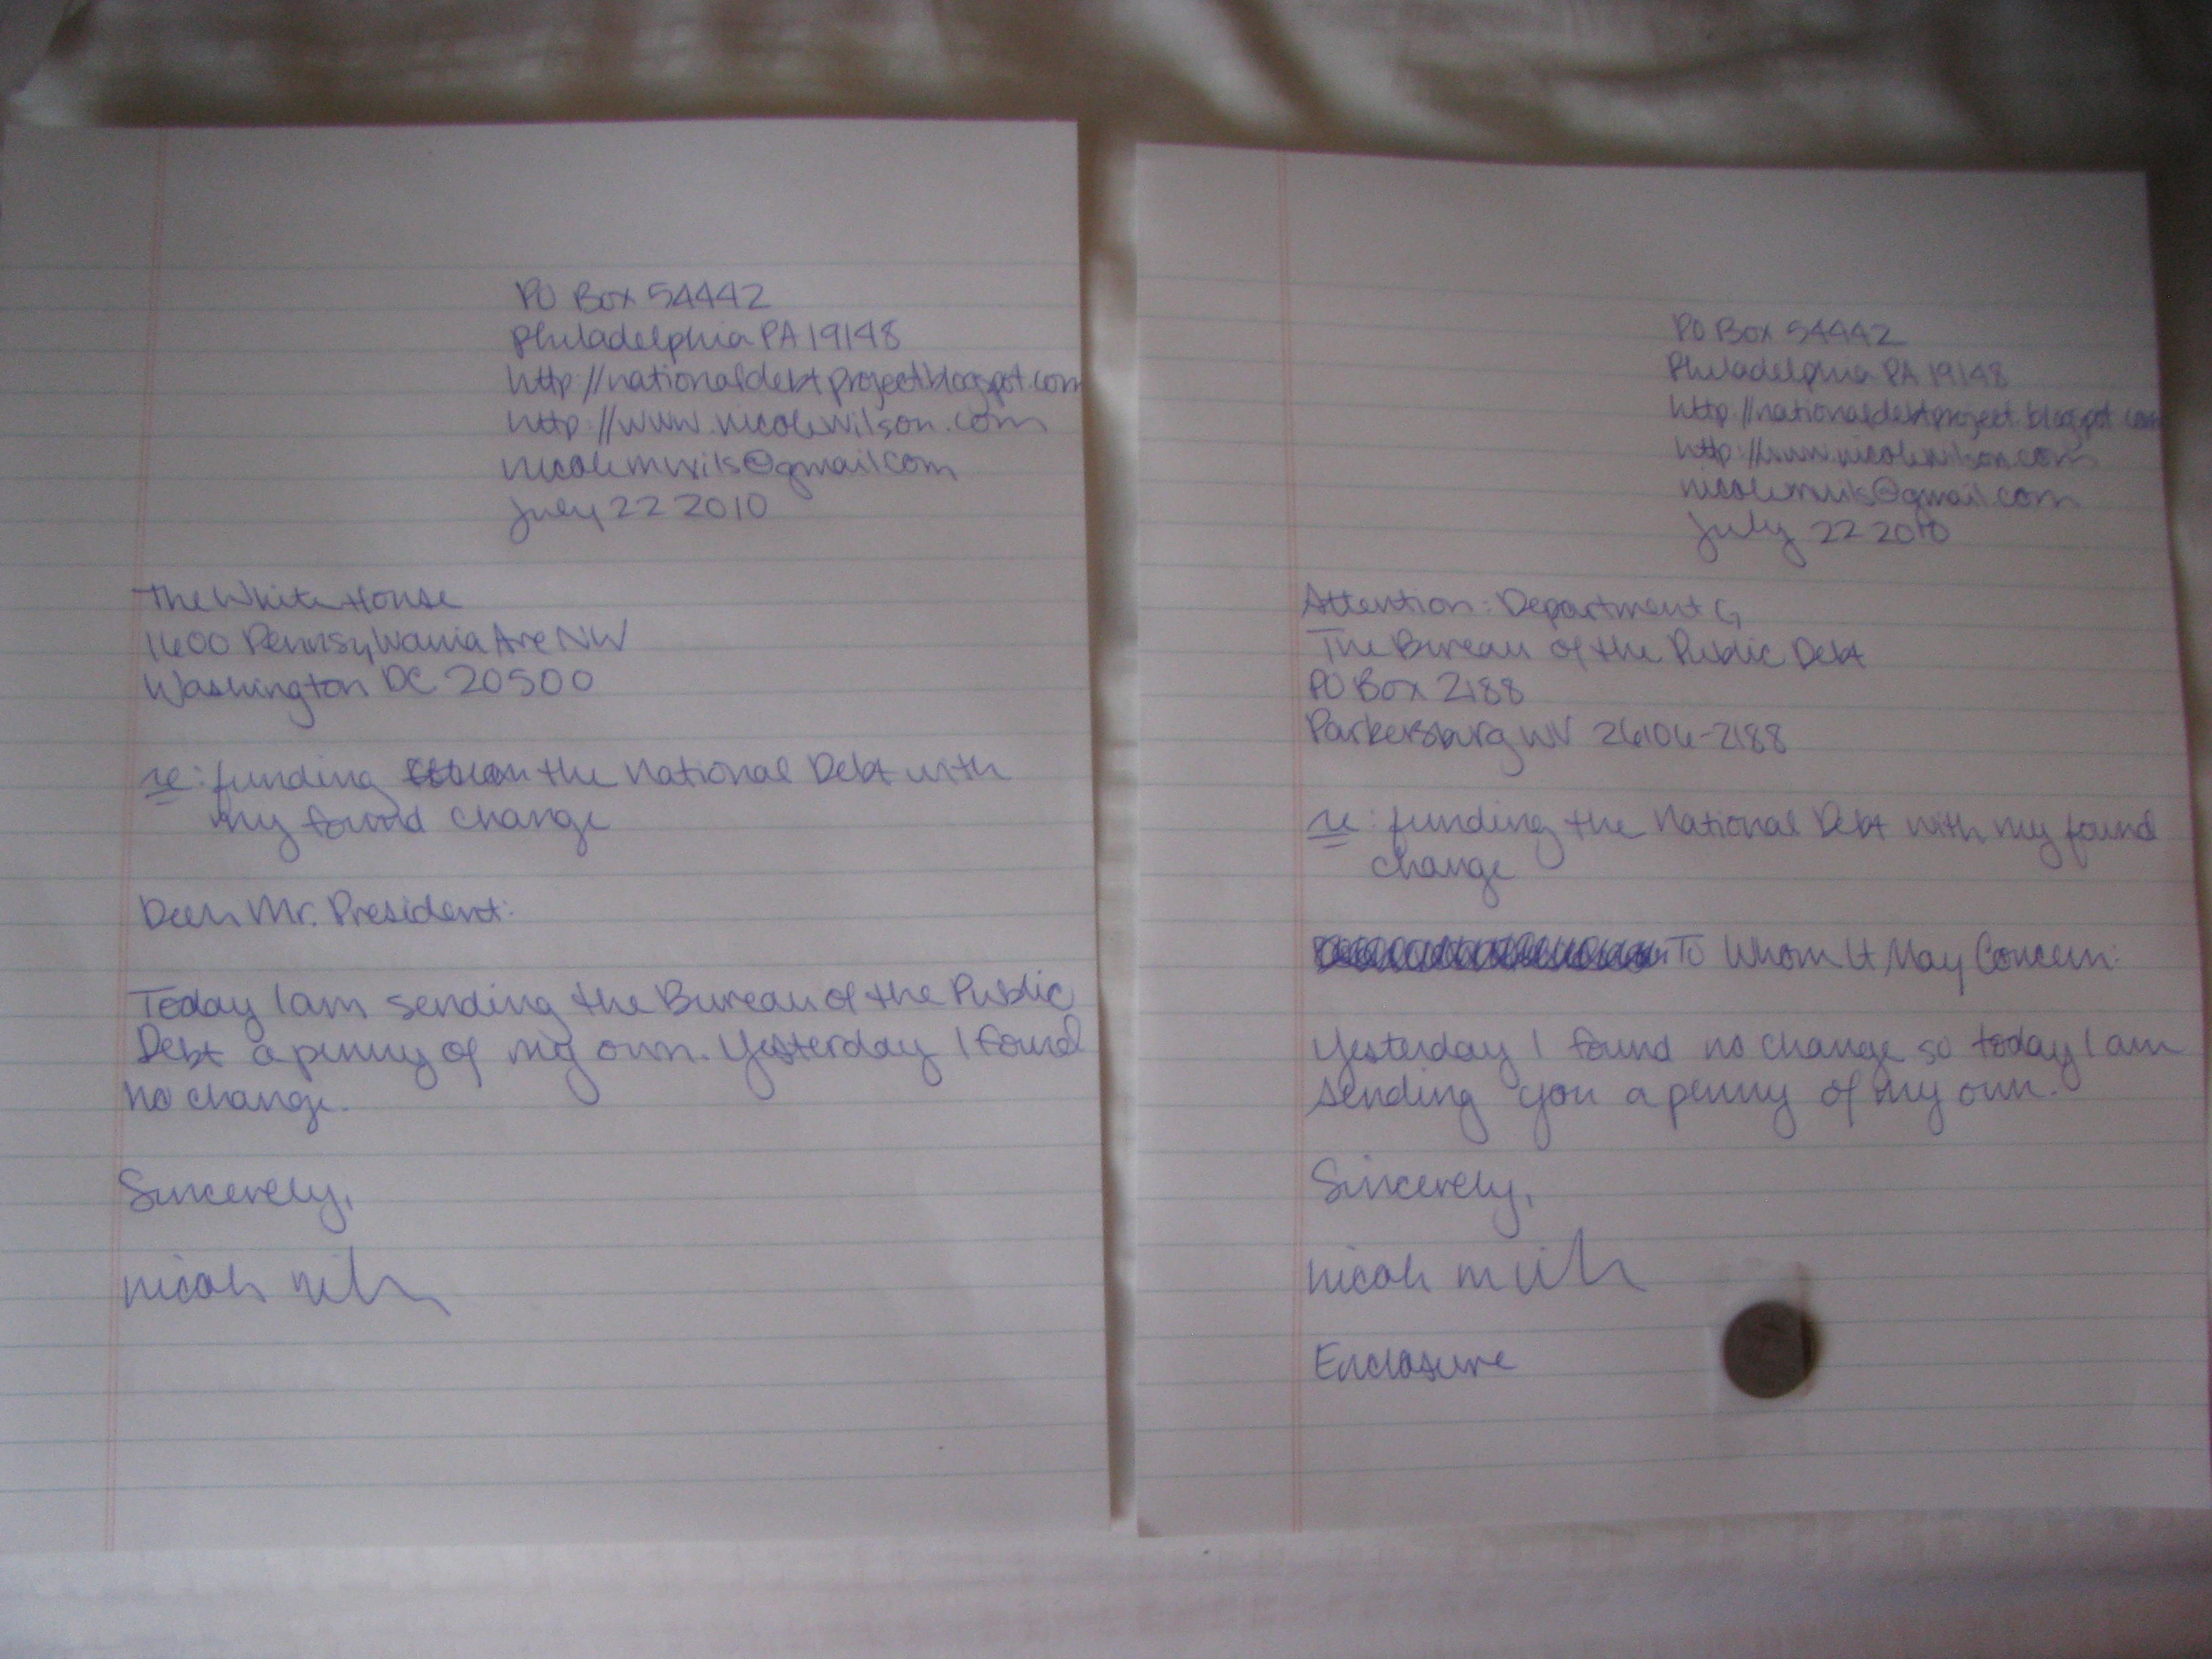 PO Box 54442
Philadelphia PA 19148
http://nationaldebtproject.blogspot.com
http://www.nicolewilson.com
nicolemwils@gmail.com
July 22 2010
The White House
1600 Pennsylvania Ave NW
Washington DC 20500
re: funding the National Debt with
my found change
Dear Mr. President:
Today I am sending the Bureau of the Public
Debt a penny of my own. Yesterday I found
no change.
Sincerely,
PO Box 54442
Philadelphia PA 19148
http://nationaldebtproject.blogspot.com
http://www.nicolewilson.com
nicolemwils@gmail.com
July 22 2010
Attention: Department G
The Bureau of the Public Debt
PO Box 2188
Parkersburg WV 26106-2188
re: funding the National Debt with my found
change
To Whom It May Concern:
Yesterday I found no change so today I am
sending you a penny of my own.
Sincerely,
Enclosure